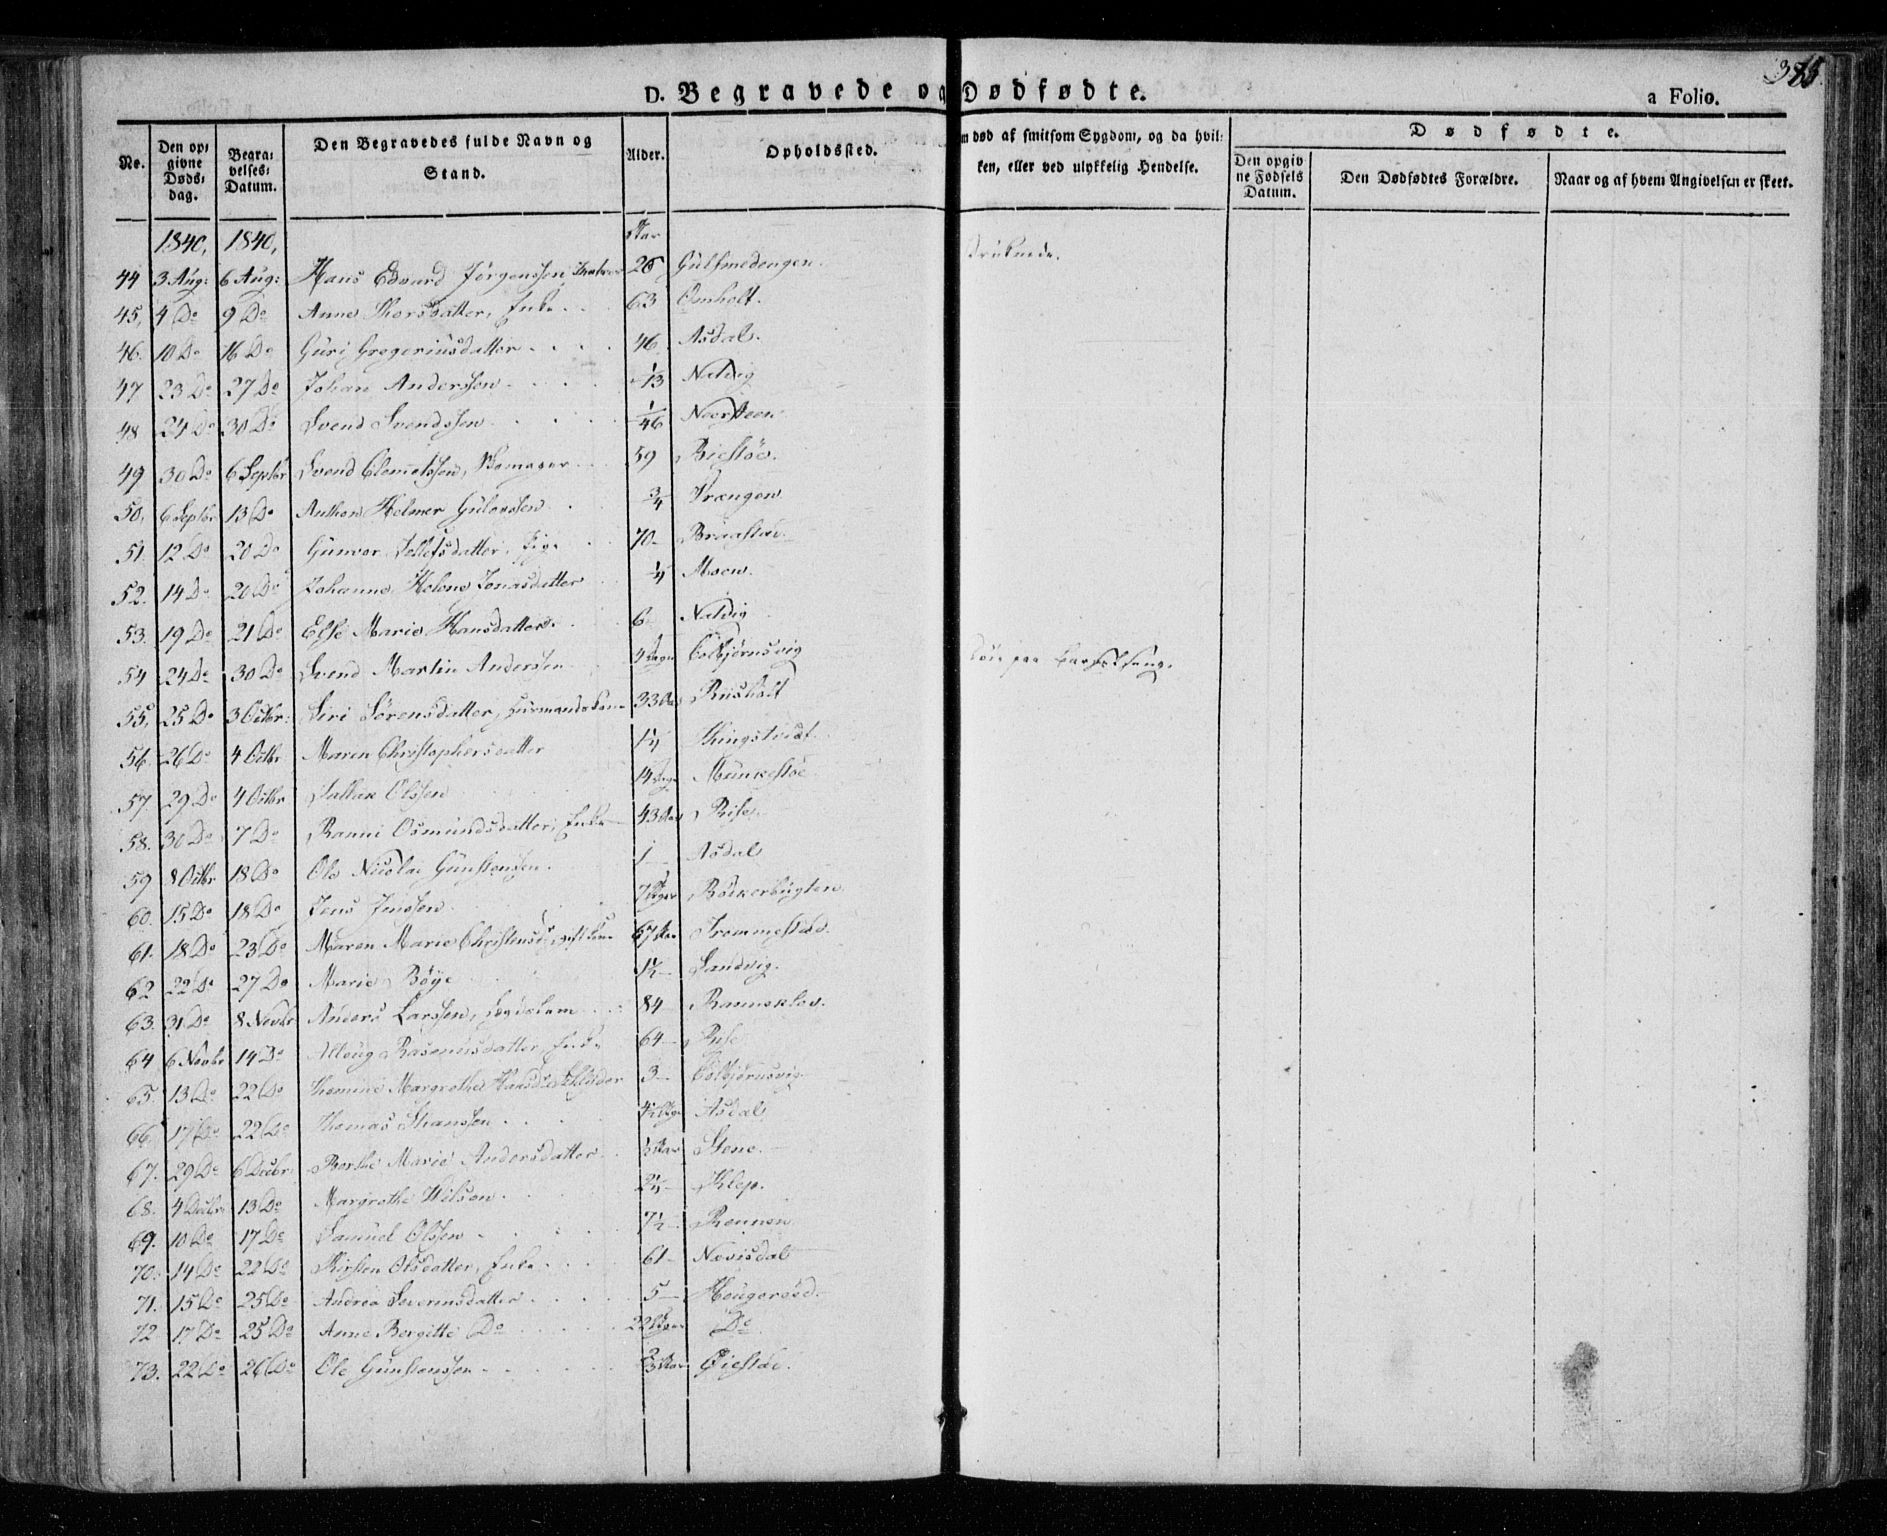 D. Begravede og Dødfødte.
a Folio.
No.
Den opgivne Døds-dag.
Begravelses-Datum.
Den Begravedes fulde Navn og Stand.
Alder.
Opholdssted.
m død af smitsom Sygdom, og da hvilken, eller ved ulykkelig Hendelse.
Dødfødte.
Den opgivne Fødsels Datum.
Den Dødfødtes Forældre.
Naar og af hvem Angivelsen er skeet.
1840, 1840, Aar
44 3 Aug: 6 Aug: Hans Edvard Jörgenssen 26 Gulsmedengen.
45, 4 Do 9 Do Anne Thorsdatter, Enke 63 Omholt.
46. 10 Do 16 Do Guri Gregeriusdatter 46 Asdal.
47 23 Do 27 Do Johan Anderssen Natvig
48 24 Do 30 Do Svend Svendssen 1/46
49 30 Do 6 Septbr Svend Clemetssen, 59
50, 6 Septbr 13 Do Anthon Helmer 3/4 Vrængen
51. 12 Do 20 Do Gunvor Tellefsdatter, Pige 70 Braastad
52. 14 Do 20 Do Johanne Helene Jonasdatter 1/4 Moen.
53. 19 Do 21 Do Else Marie Hansdatter 6 Natvig
54 24 Do 30 Do Svend Martin Anderssen 4 Dage Colbjørnsvig
55, 25 Do 3 Octbr: Siri Sørensdatter, Huusmandskone 33 Aar Riisholt Døde paa Barselseng.
56. 26 Do 4 Octbr Maren Christophersdatter
57. 29 Do 4 Octbr Olssen 14 Dage Munkestøe
58. 30 Do 7 Do Ranni Osmundsdatter, Enke 43 Aar Rise.
59 8 Octbr 18 Do Ole Nicolai Gunstensen. 1 Asdal
60. 15 Do 18 Do Jens Jenssen 7 Bökerbugten
61. 18 Do 23 Do Maren Marie 67 Aar Trommestad.
62 22 Do 27 Do Marie Böye 1 1/2 Sandvig.
63. 31 Do 8 Novbr Anders Larssen, Lægdslem 84 Ravneklev.
64 6 Novbr 14 Do Alloug Rasmusdatter, Enke 64 Rise
65. 13 Do 22 Do Thomine Margrethe 3 Colbjørnsvig
66. 17 Do 22 Do Thomas Asdal
67. 29 Do 6 Decbr. Berthe Marie Andersdatter Stene.
68. 4 Decbr. 13 Do Margrethe Nilsen Klep.
69. 10 Do 17 Do Samuel Olssen 7 1/2 Rennen
70. 14 Do 22 Do Kirsten Olsdatter, Enke 61 Nævisdal
71. 15 Do 25 Do Andrea Severinsdatter 5 Hougerød.
72 17 Do 25 Do Anne Bergitte Do Do
73. 22 Do 26 Do Ole Gunstenssen 2/3 Aar Øiestad.